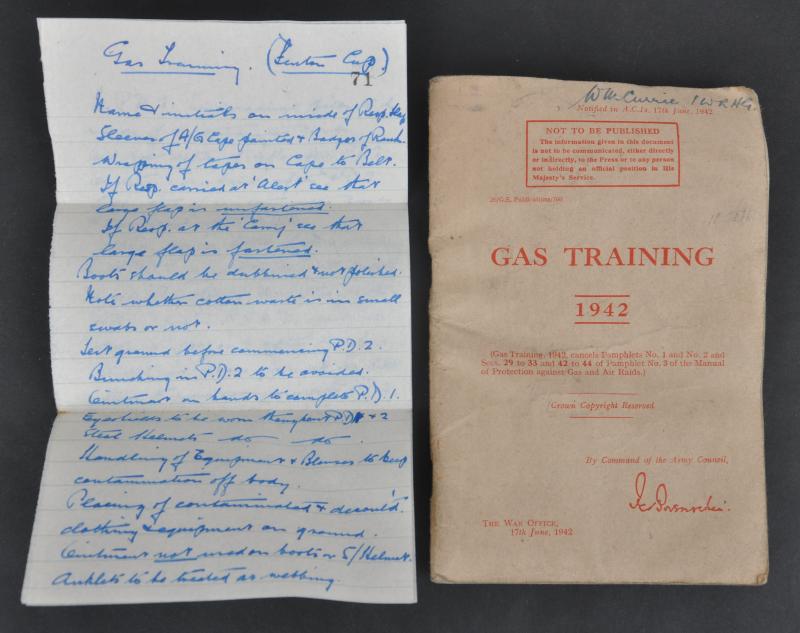 Gas Training. (Fenton Cap.)
71
Name & initials on inside of Resp. Hav
Sleeves of A/G Cape painted & Badges of Rank.
Wrapping of tapes on Cape to Belt.
If Resp. carried at 'Alert' see that
large flap is unfastened.
If Resp. at the 'Carry' see that
large flap is fastened.
Boots should be dubbined & not polished.
Note whether cotton waste is in small
swabs or not.
Test ground before commencing P.D. 2.
Bunching in P.D. 2 to be avoided.
Ointment on hands to complete P.D. 1.
Eyeshields to be worn throughout P.D. 1 & 2
Steel Helmets do do.
Handling of Equipment & Blouses to keep
contamination off body.
Placing of contaminated & decont'd.
clothing & equipment on ground.
Ointment not used on boots or S/Helmet.
Anklets to be treated as webbing.
W M Currie
Notified in A.C.Is. 17th June, 1942
NOT TO BE PUBLISHED
The information given in this document
is not to be communicated, either directly
or indirectly, to the Press or to any person
not holding an official position in His
Majesty's Service.
26/G.S. Publications/760
GAS TRAINING
1942
(Gas Training, 1942, cancels Pamphlets No. 1 and No. 2 and
Secs. 29 to 33 and 42 to 44 of Pamphlet No. 3 of the Manual
of Protection against Gas and Air Raids.)
Crown Copyright Reserved
By Command of the Army Council,
THE WAR OFFICE,
17th June, 1942